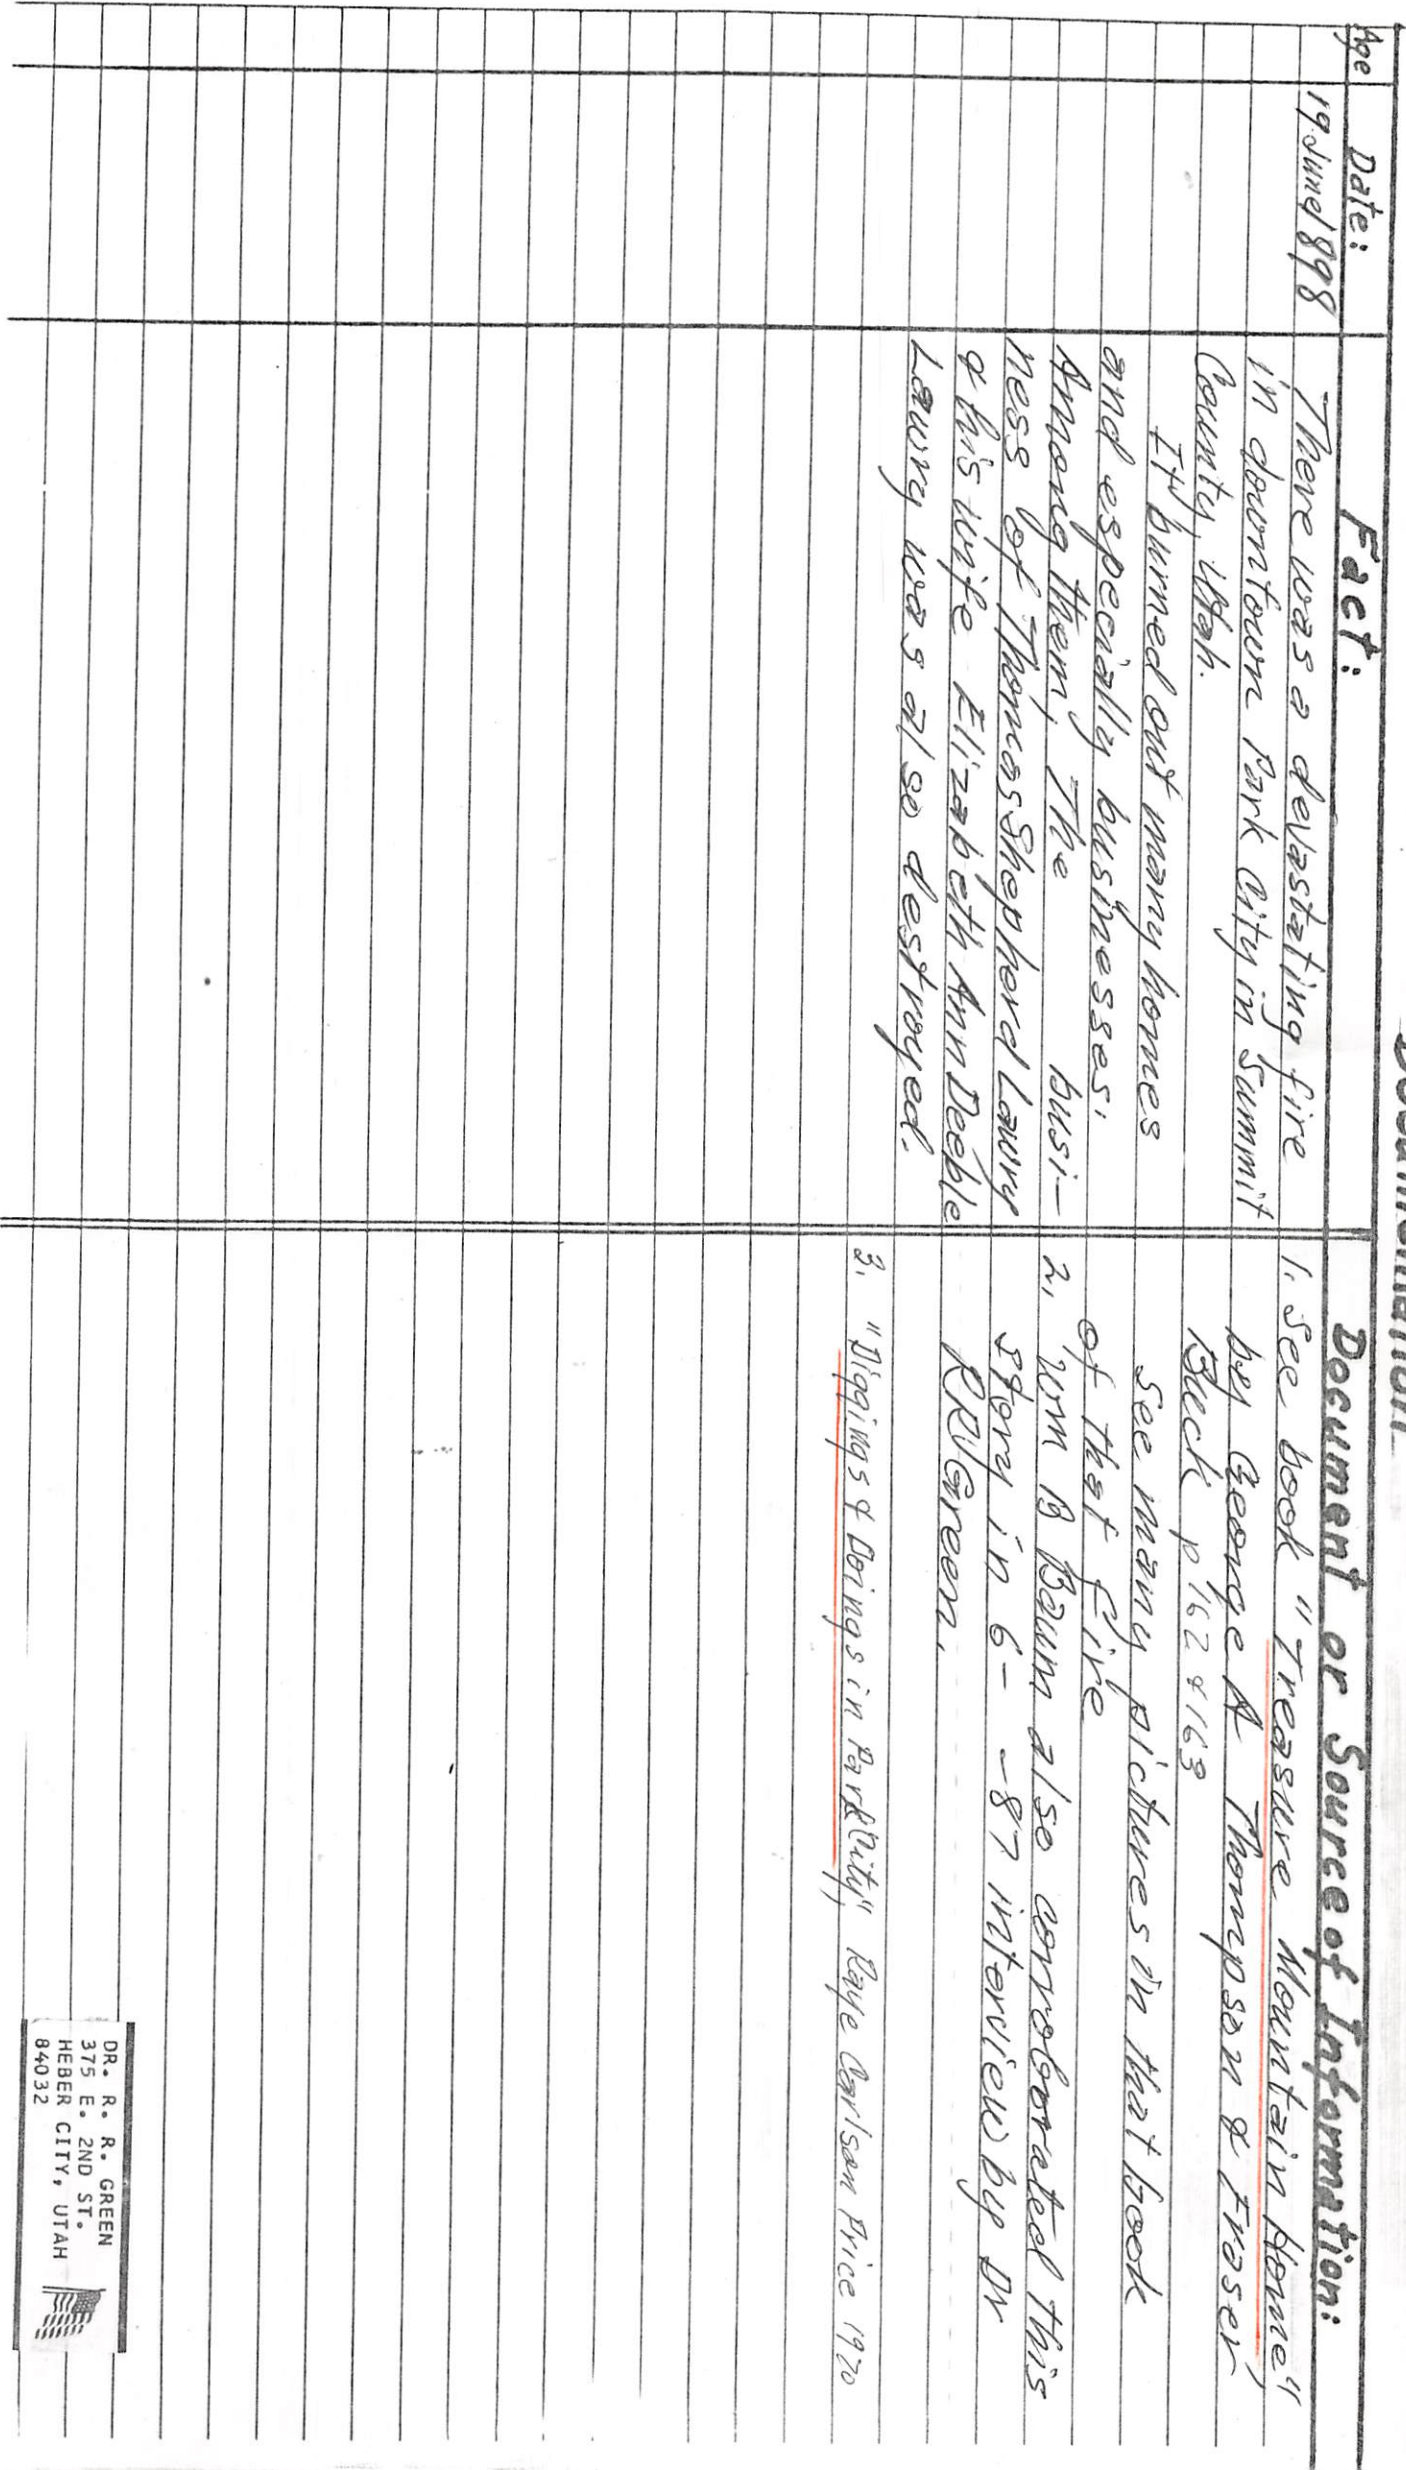 Documentation
Age Date: Fact: Document or Source of Information:
19 June 1898
There was a devastating fire
in downtown Park City in Summit
County, Utah.
It burned out many homes
and especially businesses.
Among them, The busi-
ness of Thomas Shepherd Lawry
& his wife Elizabeth Ann Deeble
Lawry was also destroyed.
1. See book "Treasure Mountain Home"
by George A Thompson & Fraser
Buck p 162 & 163
See many pictures in that book
of that fire
2. Wm B Baum also corroborated this
story in 6- -87 interview by Dr
RRGreen.
3. "Diggings & Doings in Park City", Raye Carlson Price 1970
DR. R. R. GREEN
375 E. 2ND ST.
HEBER CITY, UTAH
84032